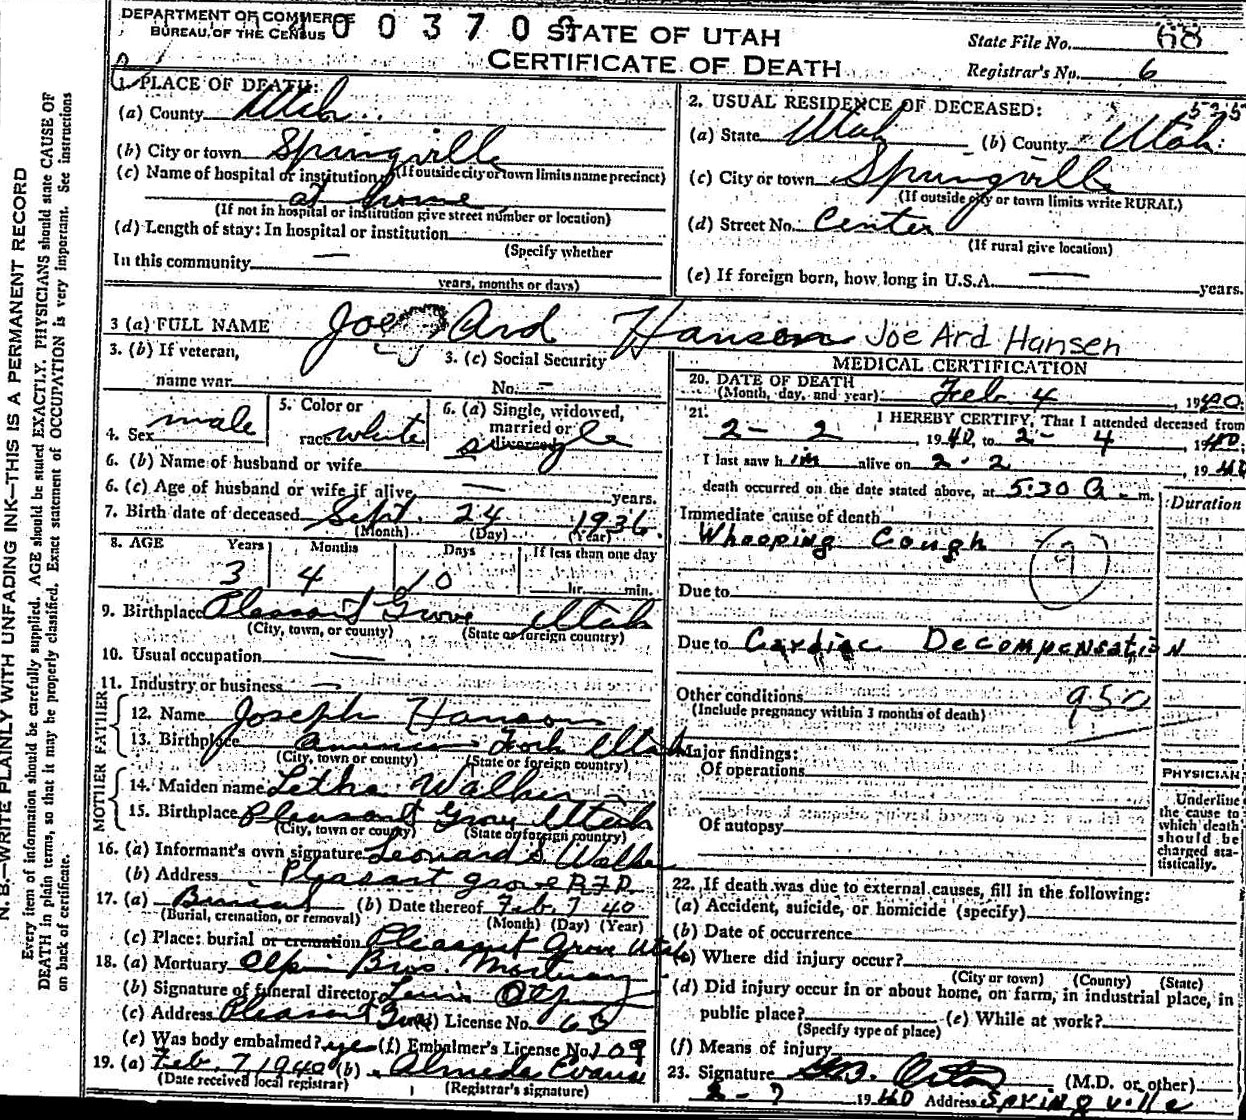 DEPARTMENT OF COMMERCE
BUREAU OF THE CENSUS
0 0 3 7 0
STATE OF UTAH
CERTIFICATE OF DEATH
State File No. 68
Registrar's No. 6
N. B.—WRITE PLAINLY WITH UNFADING INK—THIS IS A PERMANENT RECORD
Every item of information should be carefully supplied. AGE should be stated EXACTLY. PHYSICIANS should state CAUSE OF
DEATH in plain terms, so that it may be properly classified. Exact statement of OCCUPATION is very important. See instructions
on back of certificate.
1. PLACE OF DEATH:
(a) County Utah
(b) City or town Springville
(If outside city or town limits name precinct)
(c) Name of hospital or institution:
at home
(If not in hospital or institution give street number or location)
(d) Length of stay: In hospital or institution
(Specify whether
In this community —
years, months or days)
2. USUAL RESIDENCE OF DECEASED:
(a) State Utah (b) County Utah
(c) City or town Springville
(If outside city or town limits write RURAL)
(d) Street No. Center
(If rural give location)
(e) If foreign born, how long in U.S.A. — years.
3 (a) FULL NAME Joe Ard Hanson Joe Ard Hansen
3. (b) If veteran,
name war
3. (c) Social Security
No. –
4. Sex male
5. Color or
race white
6. (a) Single, widowed,
married or
divorced single
6. (b) Name of husband or wife
6. (c) Age of husband or wife if alive — years.
7. Birth date of deceased Sept. 24 1936
(Month) (Day) (Year)
8. AGE Years Months Days If less than one day
3 4 10 hr. min.
9. Birthplace Pleasant Grove Utah
(City, town, or county) (State or foreign country)
10. Usual occupation —
11. Industry or business —
FATHER
12. Name Joseph Hanson
13. Birthplace American Fork Utah
(City, town or county) (State or foreign country)
MOTHER
14. Maiden name Letha Walker
15. Birthplace Pleasant Grove Utah
(City, town or county) (State or foreign country)
16. (a) Informant's own signature Leonard S Walker
(b) Address Pleasant grove R.F.D.
17. (a) Burial (b) Date thereof Feb. 7 40
(Burial, cremation, or removal) (Month) (Day) (Year)
(c) Place: burial or cremation Pleasant Grove Utah
18. (a) Mortuary Olpin Bros. Mortuary
(b) Signature of funeral director Lewis Olpin
(c) Address Pleasant Grove (d) License No. 65
(e) Was body embalmed? yes (f) Embalmer's License No. 109
19. (a) Feb. 7, 1940 (b) Almeda Evans
(Date received local registrar) (Registrar's signature)
MEDICAL CERTIFICATION
20. DATE OF DEATH
(Month, day, and year) Feb. 4, 1940.
21. I HEREBY CERTIFY, That I attended deceased from
2 - 2, 1940, to 2 - 4, 1940.
I last saw him alive on 2 - 2, 1940
death occurred on the date stated above, at 5:30 a. m.
Duration
Immediate cause of death
Whooping Cough 9
Due to
Due to Cardiac Decompensation
Other conditions 95
(Include pregnancy within 3 months of death)
Major findings:
Of operations
Of autopsy
PHYSICIAN
Underline
the cause to
which death
should be
charged sta-
tistically.
22. If death was due to external causes, fill in the following:
(a) Accident, suicide, or homicide (specify)
(b) Date of occurrence
(c) Where did injury occur?
(City or town) (County) (State)
(d) Did injury occur in or about home, on farm, in industrial place, in
public place? (e) While at work?
(Specify type of place)
(f) Means of injury
23. Signature Orton (M.D. or other)
2 - 7 1940 Address Springville